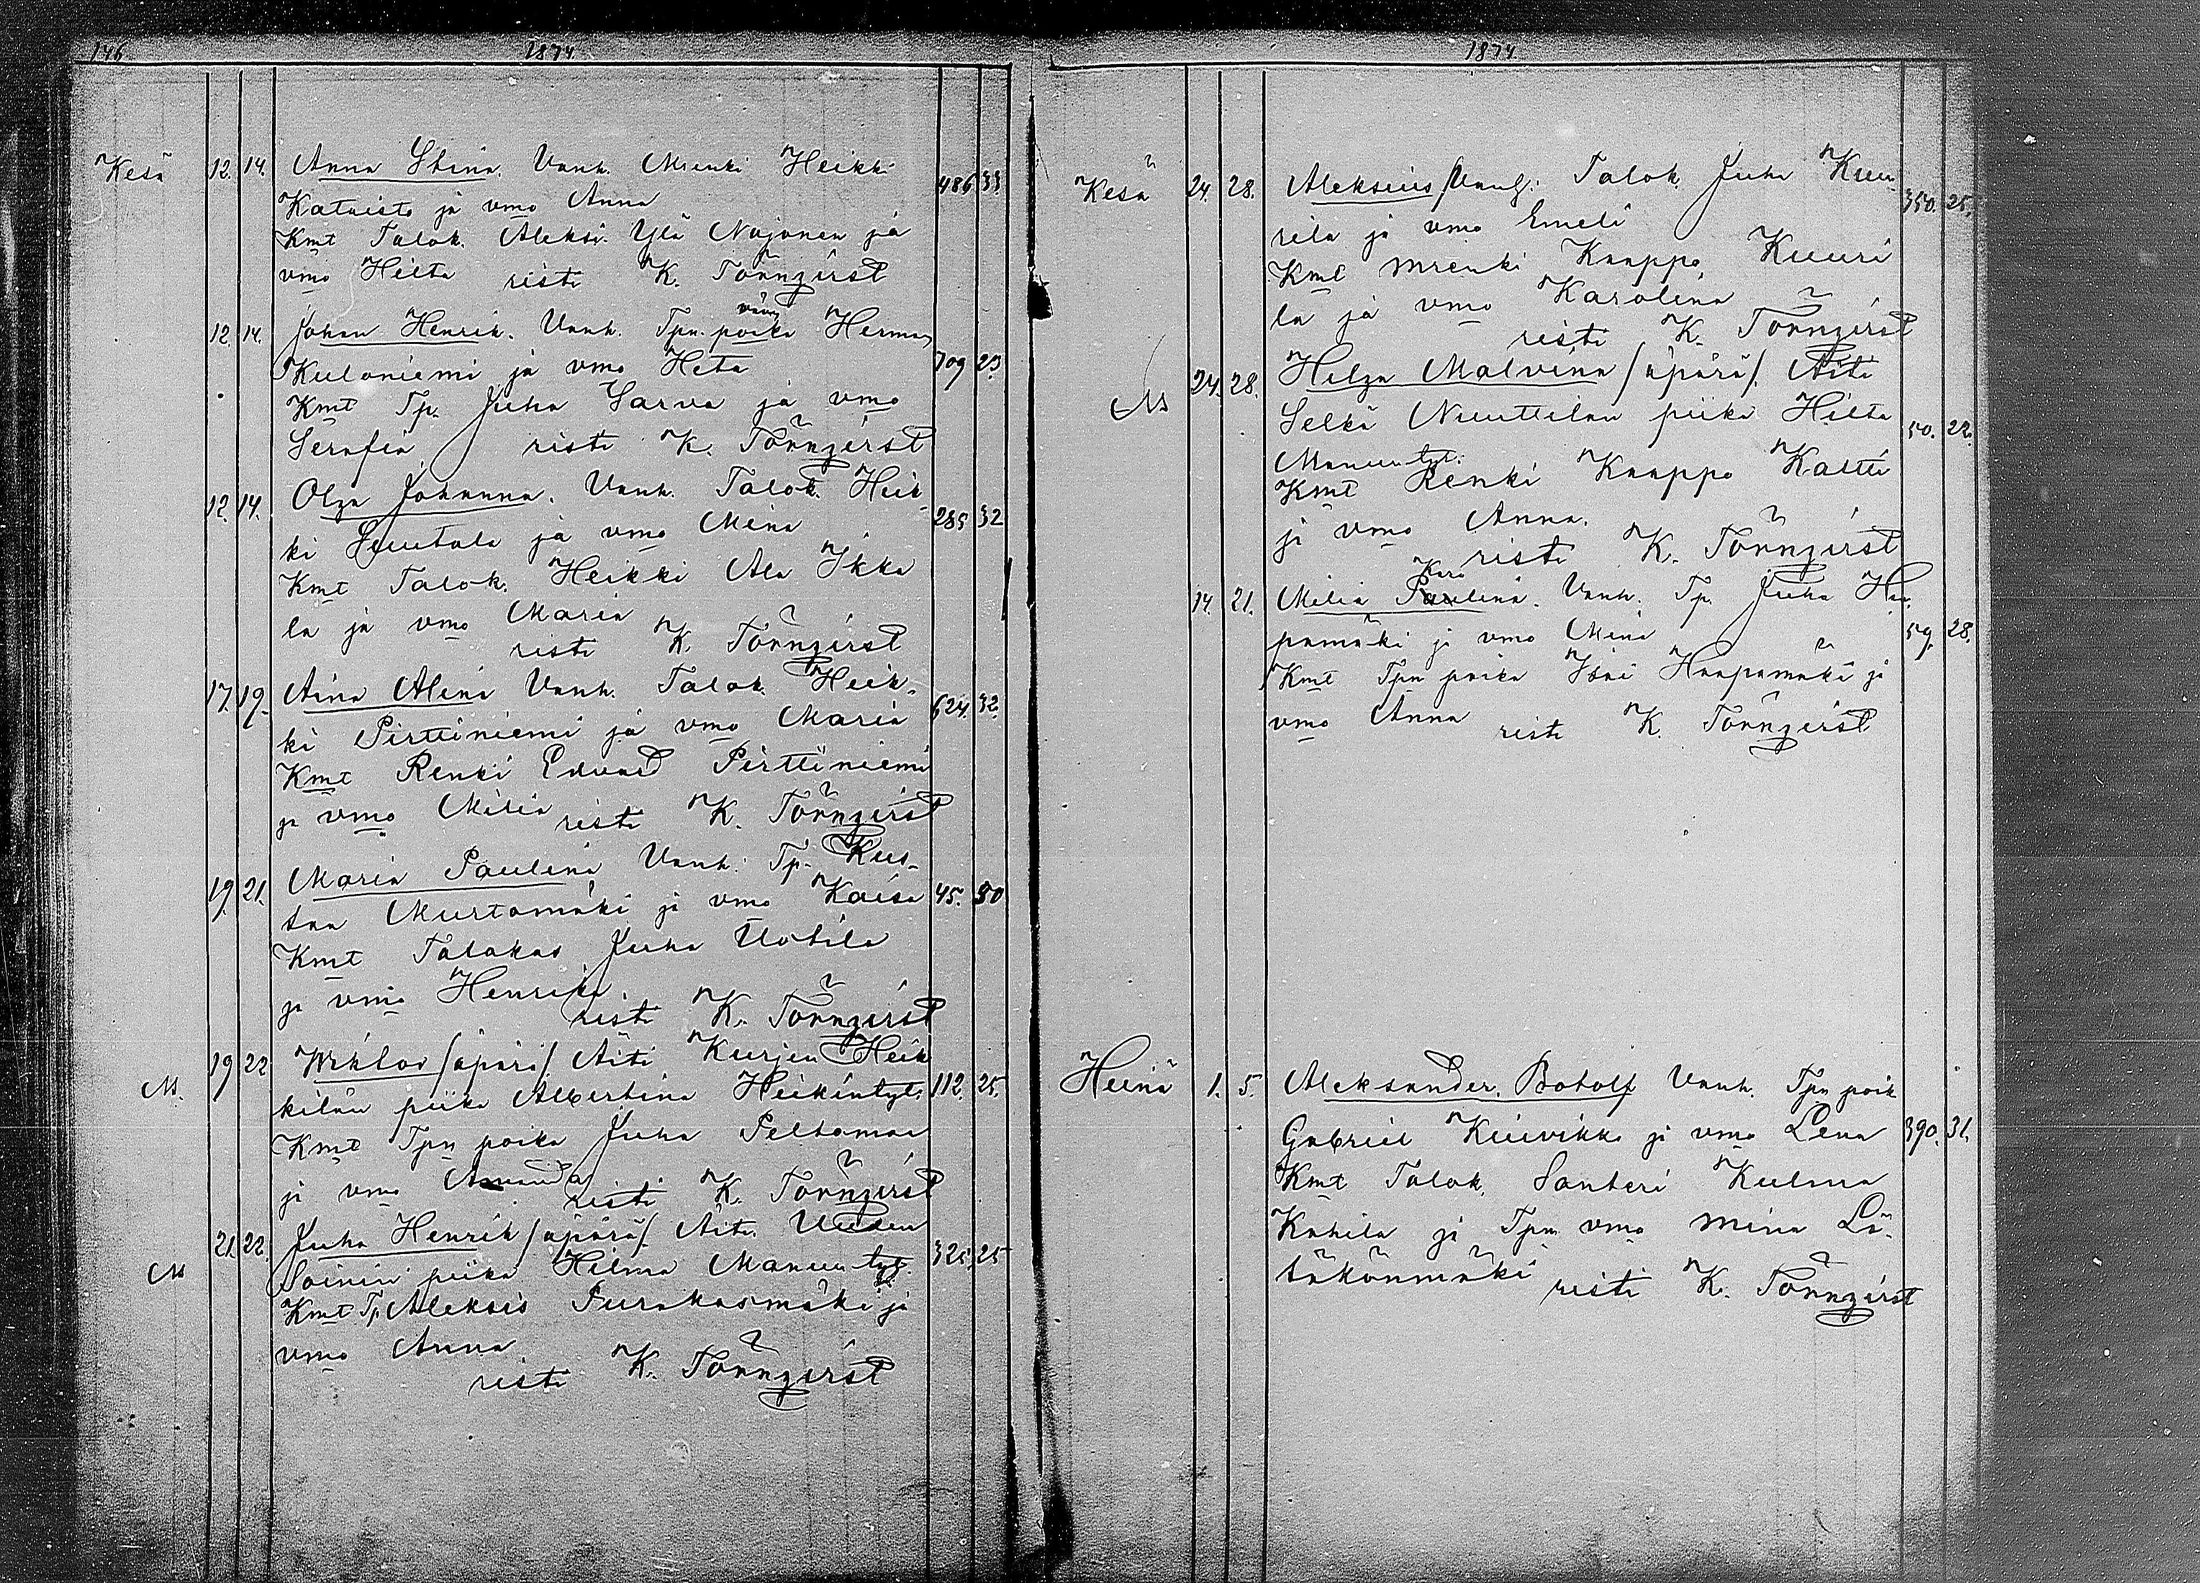 146 1874
Kesä 12. 14. Anna Stina. Vanh. Mrenki Heikki
Kataisto ja vmo Anna 486 33
Kmt Talok. Aleksi Ylä Nojonen ja
vmo Hilta risti K. Törnqvist
12. 14. Johan Henrik. Vanh. Tpn. poika vävy Herman
Kuloniemi ja vmo Heta 709 23
Kmt Tp. Juha Sarva ja vmo
Serafia risti K. Törnqvist
12. 14. Olga Johanna. Vanh. Talok. Heik-
ki Luutala ja vmo Mina 285 32
Kmt Talok. Heikki Ala Ikka
la ja vmo Maria
risti K. Törnqvist
17. 19. Aina Alina Vanh. Talok. Heik-
ki Pirttiniemi ja vmo Maria 624. 32.
Kmt Renki Edvard Pirttiniemi
ja vmo Milia risti K. Törnqvist
19. 21. Maria Paulina Vanh. Tp. Kus-
taa Murtomäki ja vmo Kaisa 45. 30
Kmt Talokas Juha Uotila
ja vmo Henrika
risti K. Törnqvist
19 22 /äpärä/ Äiti Kurjen Heik
M. kilän piika Albertina Heikintyt. 112. 25.
Kmt Tpn poika Juha Peltomaa
ja vmo Amanda risti K. Törnqvist
21. 22. Juha Henrik /äpärä/ Äiti Uuden
M Soinin piika Hilma Manuntyt. 325. 25
Kmt Tp. Aleksis Purakasmäki ja
vmo Anna
risti K. Törnqvist
1874
Kesä 24. 28. Aleksius /Vanh. Talok. Juha Kuu-
rila ja vmo Emeli 350. 25.
Kmt Mrenki Kaappo Kuuri
la ja vmo Karolina
risti K. Törnqvist
M 24. 28. Helga Malvina /äpärä/. Äiti
Selkä Nuuttilan piika Hilta 50. 22.
Manuntyt.
Kmt Renki Kaappo Kattti
ja vmo Anna.
risti K. Törnqvist
14. 21. Milia Karolina. Vanh. Tp. Juha Haa-
pamäki ja vmo Mina 59. 28.
Kmt Tpn poika Haapamäki ja
vmo Anna risti K. Törnqvist
Heinä 1. 5. Aleksander Botolf Vanh. Tpn poik
Gabriel Kiuvikko ja vmo Lena 390. 31.
Kmt Talok. Santeri Kulma
Kahila ja Tpn vmo Mina Lä-
täkönmäki risti K. Törnqvist